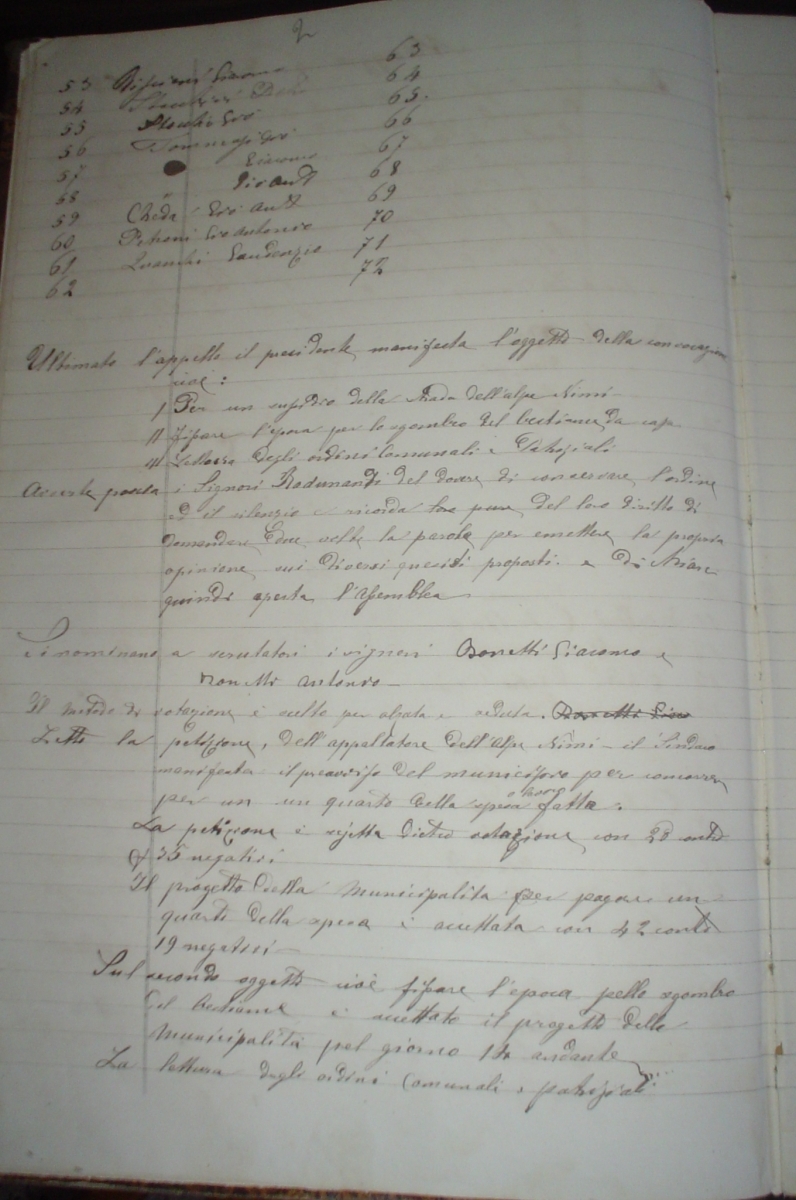 2
53 Giacomo 63
54 64
55 Gio 65.
56 Tommasi Gio 66
57 Giacomo 67
58 " Gio Ant 68
59 Cheda Gio Ant 69
60 Petroni Gio Antonio 70
61 Gaudenzio 71
62 72
Ultimato l'appello il presidente manifesta l'oggetto della convocazione
cioè:
I Per un sussidio della strada dell'alpe Nimi
II fissare l'epoca per lo sgombro del bestiame da casa
Lettura degli ordini Comunali e Patriziali
i Signori Radunandi del dovere di conservare l'ordine
ed il silenzio e ricorda loro pure del loro diritto di
domandare due volte la parola per emettere la propria
opinione sui diversi quesiti proposti. e
quindi aperta l'assemblea
Si nominano a scrutatori i signori Bonetti Giacomo e
Antonio
Il metodo di votazione è scelto per alzata e seduta. Bonetti Giac
Letta la petizione, dell'appaltatore dell'Alpe Nimi il Sindaco
manifesta il preavviso del municipio per concorrere
per un un quarto della spesa fatta.
La petizione è rejetta dietro votazione con 20 contro
35 negativi
Il progetto della Municipalità per pagare un
quarto della spesa è accettata con 42 contro
19 negativi
Sul secondo oggetto cioè fissare l'epoca pello sgombro
del bestiame è accettato il progetto della
Municipalità pel giorno 14 andante
La lettura degli ordini Comunali e patriziali